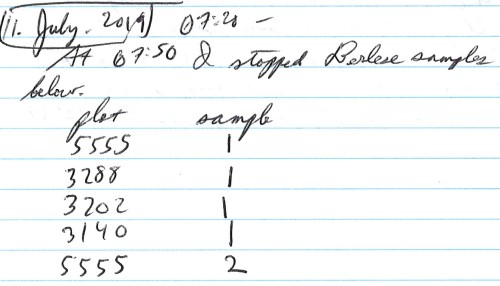 11. July. 2019) 07:20 -
At 07:50 I stopped Berlese samples
below.
plot sample
5555 1
3288 1
3202 1
3140 1
5555 2